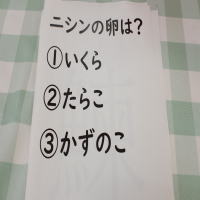 ニシンの卵は?
①いくら
②たらこ
③かずのこ